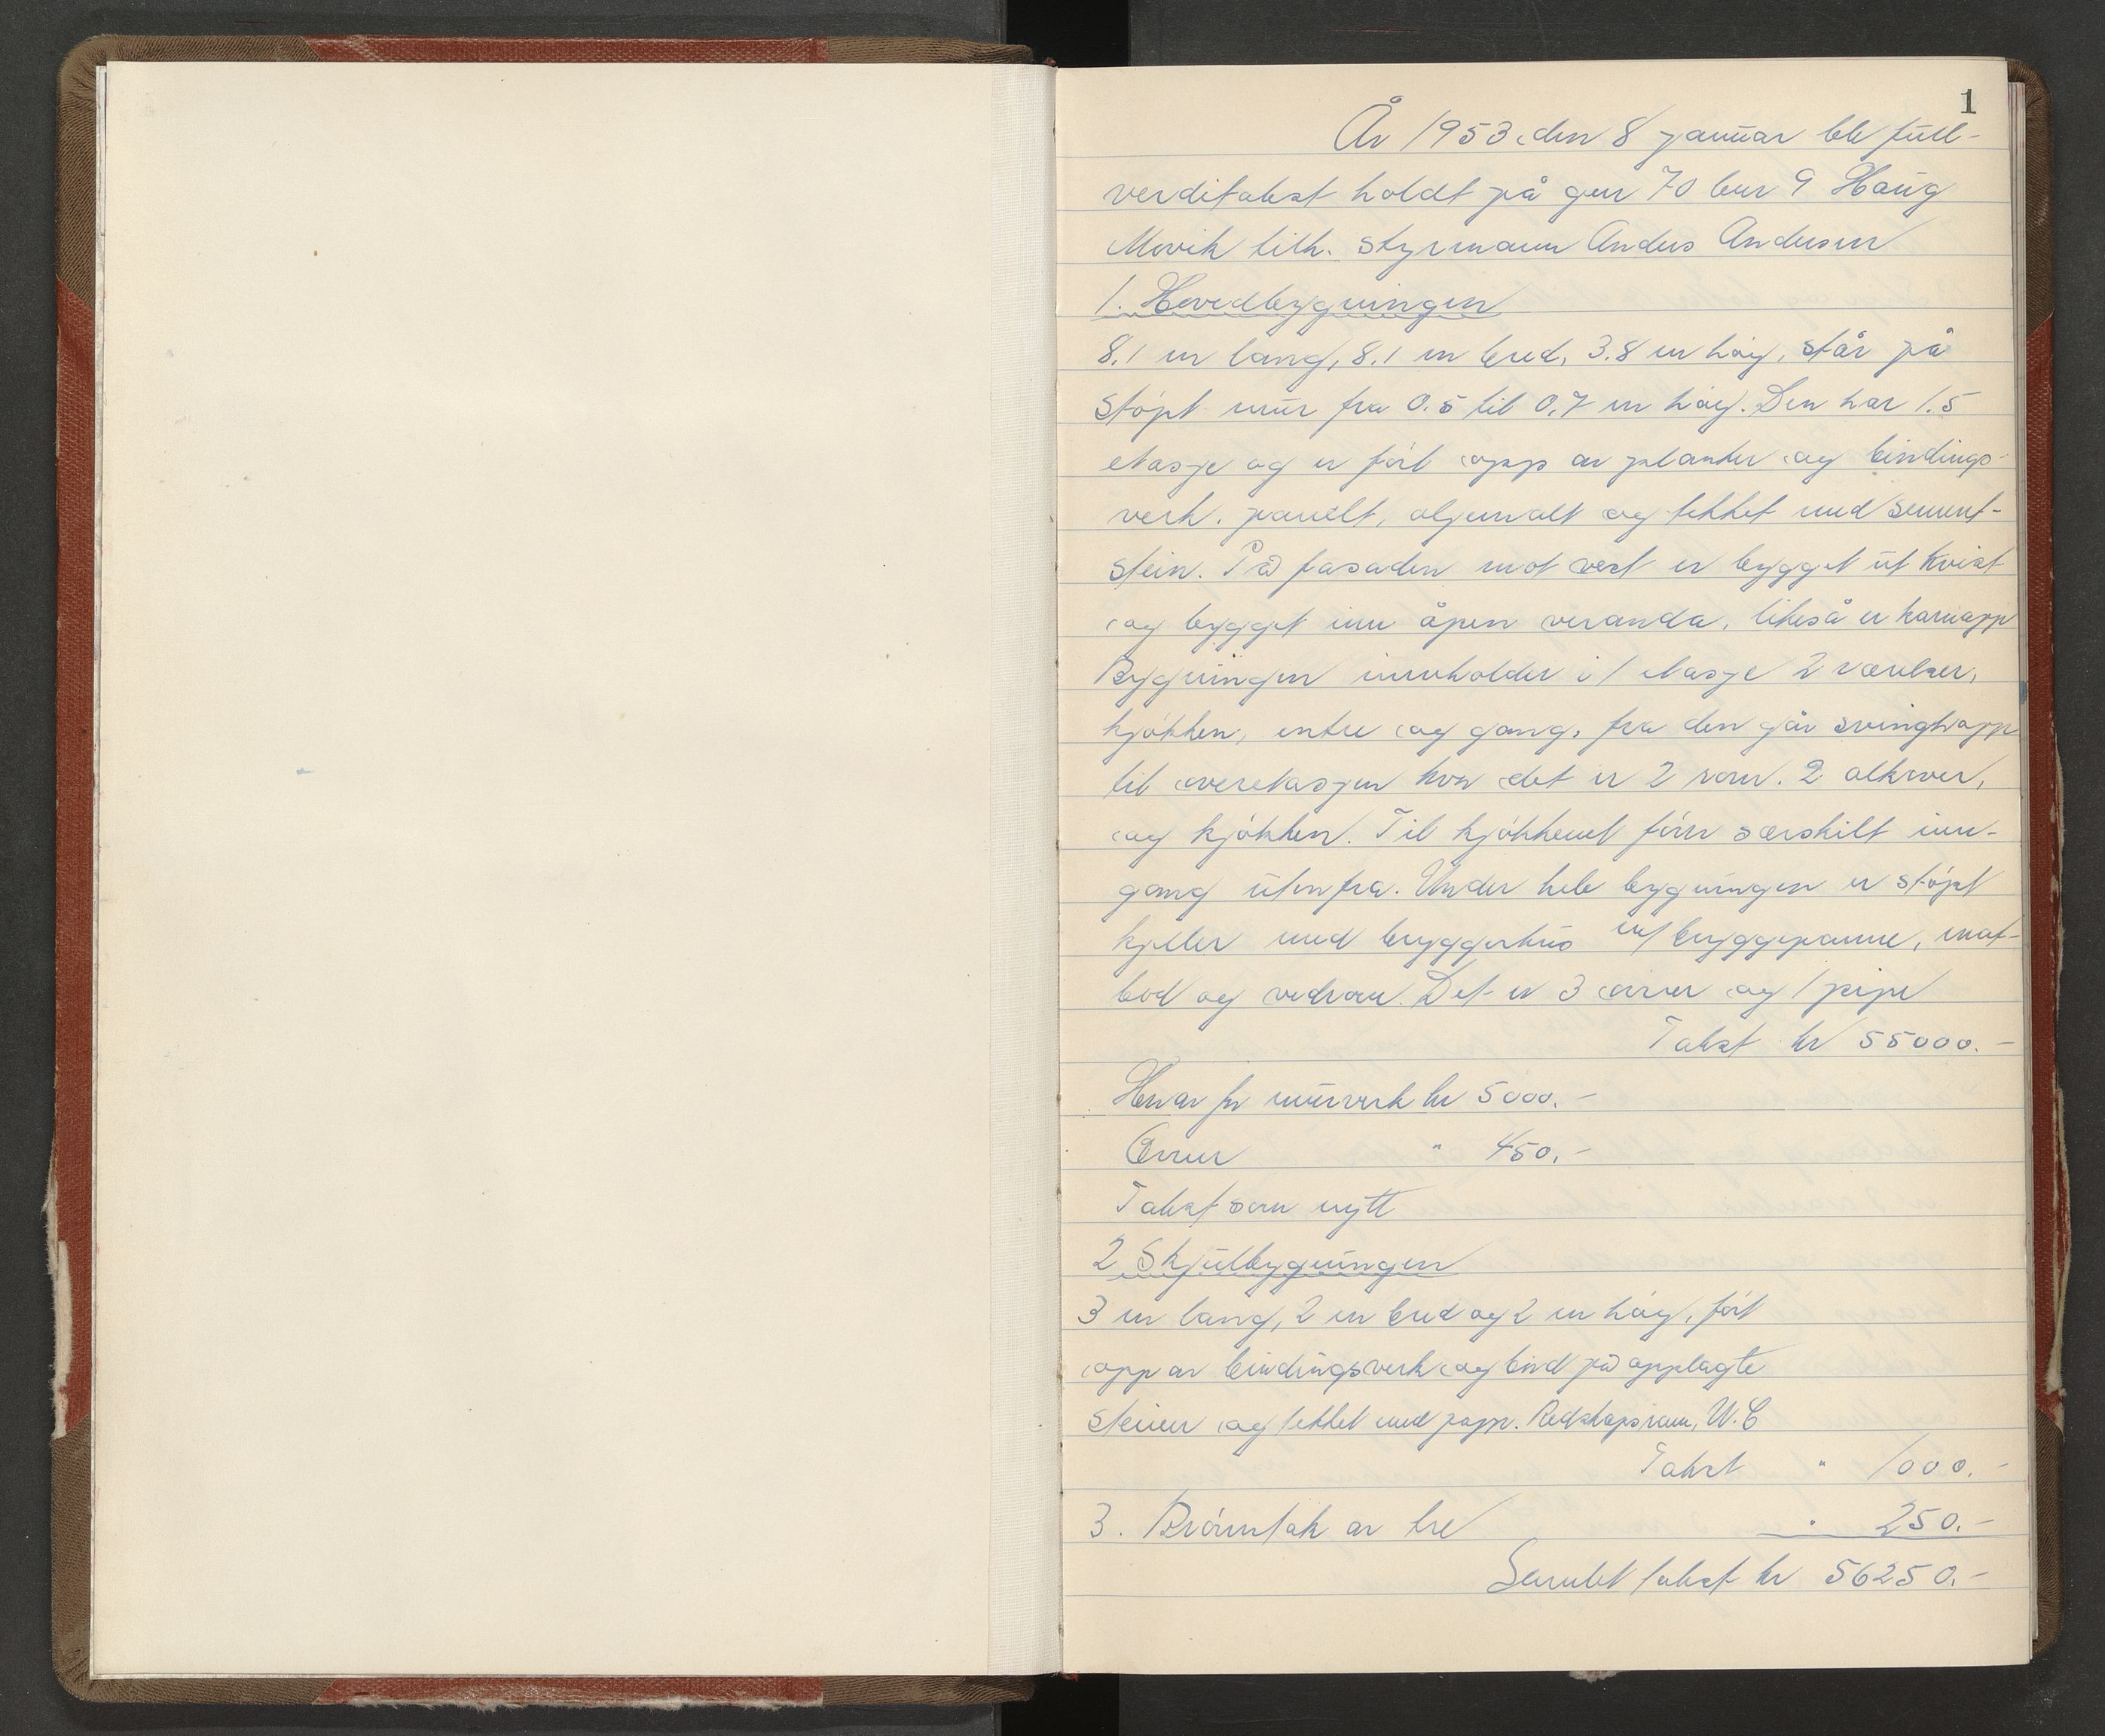 1
År 1953 den 8 januar ble full-
verditakst holdt på gnr 70 bnr 9 Haug
Movik tilh. styrmann Anders Andersen
1. Hovedbygningen
8.1 m lang, 8.1 m bred, 3.8 m høg, står på
støpt mur fra 0.5 til 0.7 m høg. Den har 1.5
etasje og er ført opp av planker og bindings-
verk. panelt, oljemalt og tekket med sement-
stein. På fasaden mot vest er bygget ut kvist
og bygget inn åpen veranda, likeså er karnapp
Bygningen inneholder i 1 etasje 2 værelser,
kjøkken, entre og gang, fra den går svingtrapp
til overetasjen hvor det er 2 rom. 2 alkover,
og kjøkken. Til kjøkkenet fører særskilt inn-
gang utenfra. Under hele bygningen er støpt
kjeller med bryggerhus m/ bryggepanne, mat-
bod og vedrom. Det er 3 ovner og 1 pipe
Takst kr 55000.-
Herav for murverk kr 5000.-
Ovner " 450.-
Takst som nytt
2 Skjulbygningen
3 m lang, 2 m bred og 2 m høg, ført
opp av bindingsverk og bord på opplagte
steiner og tekket med papp. Redskapsrom, W.C
Takst " 1000.-
3. Brønntak av tre " 250.-
Samlet takst kr 56250.-